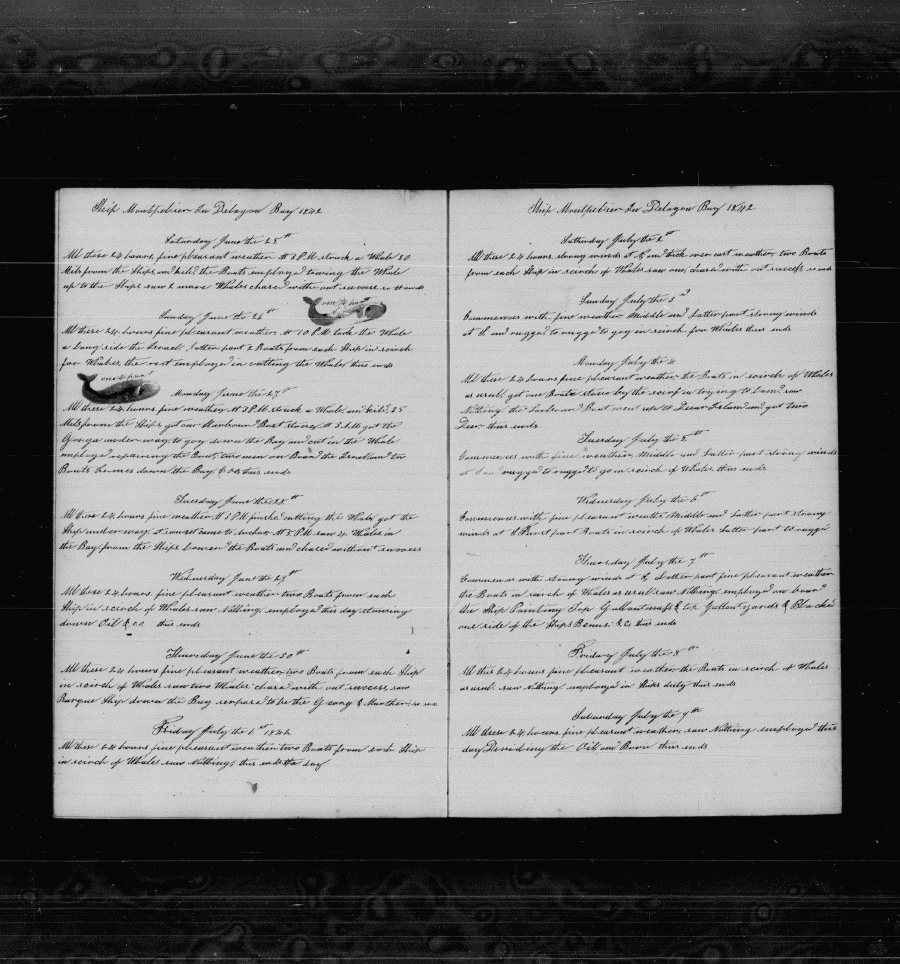 Ship Montpelier In Delagoa Bay 1842
Saturday June the 25th
All these 24 hours, fine pleasant weather At 3 P.M. struck a Whale 30
Mils from the Ships and kild the Boats employed towing the Whale
up to the Ships saw 2 more Whales chased with out success so ends
one &
Sunday June the 26th
All these 24 hours fine pleasant weather At 10 P.M. took the Whale
a Long side the Latter part 2 Boats from each Ship in serch
for Whales, the rest employed in cutting the Whale, thus ends
one
Monday June the 27th
All these 24 hours fine weather At 3 P.M. struck a Whale, and kild, 25
Mils from the Ships, got our Boat stove, At 3 A.M. got the
under way, to goy down the Bay and cut in the Whale
employed repairing the Boat, two men on Board the and two
Boats down the Bay & Co thus ends
Tuesday June the 28th
All these 24 hours fine weather At 3 P.M. cutting the Whale got the
Ship under way, at sunset came to Anchor At 5 P.M. saw 4 Whales in
the Bay, from the Ships the Boats and chased without success
Wednesday June the 29th
All these 24 hours, fine pleasant weather two Boats from each
Ship in serch of Whales saw Nothing, employed this day, stowing
down Oil & co thus ends
Thursday June the 30th
All these 24 hours fine pleasant weather, two Boats from each Ship
in serch of Whales saw two Whales chased with out success, saw
Barque Ship down the Bay to be the &
Friday July the 1st 1842
All these 24 hours fine pleasant weather two Boats from each Ship
in serch of Whales saw Nothing, thus ends the day
Ship Montpelier In Delagoa Bay 1842
Saturday July the 2nd
All these 24 hours, strong winds at and thick over cast weather, two Boats
from each Ship in serch of Whales saw one, chased with out success so ends
Sunday July the 3d
Commences with fine weather Middle and Latter part strong winds
at S. and rugged to rugged to goy in serch for Whales thus ends
Monday July the 4
All these 24 hours fine pleasant weather the Boats in serch of Whales
as usul got one Boat stove by the serf in trying to Land, saw
Nothing the and Boat went up to Dear Island and got two
Dear thus ends
Tuesday July the 5th
Commences with fine weather Middle and Latter part strong winds
at S and rugged to rugged to go in serch of Whales thus ends
Wednesday July the 6th
Commences with fine pleasant weather Middle and Latter part strong
winds at S First part Boats in serch of Whales Latter part to rugged
Thursday July the 7th
Commences with strong winds at S, Latter part fine pleasant weather
the Boats in serch of Whales as usul saw Nothing, employed on board
the Ship Painting Top Gallant masts & top Gallant yards & Blacked
one side of the Ships Bends & Co thus ends
Friday July the 8th
All this 24 hours fine pleasant weather the Boats in serch of Whales
as usul saw Nothing employed in Ships duty thus ends
Saturday July the 9th
All these 24 hours fine pleasant weather, saw Nothing employed this
day, Devideing the Oil and Bone thus ends